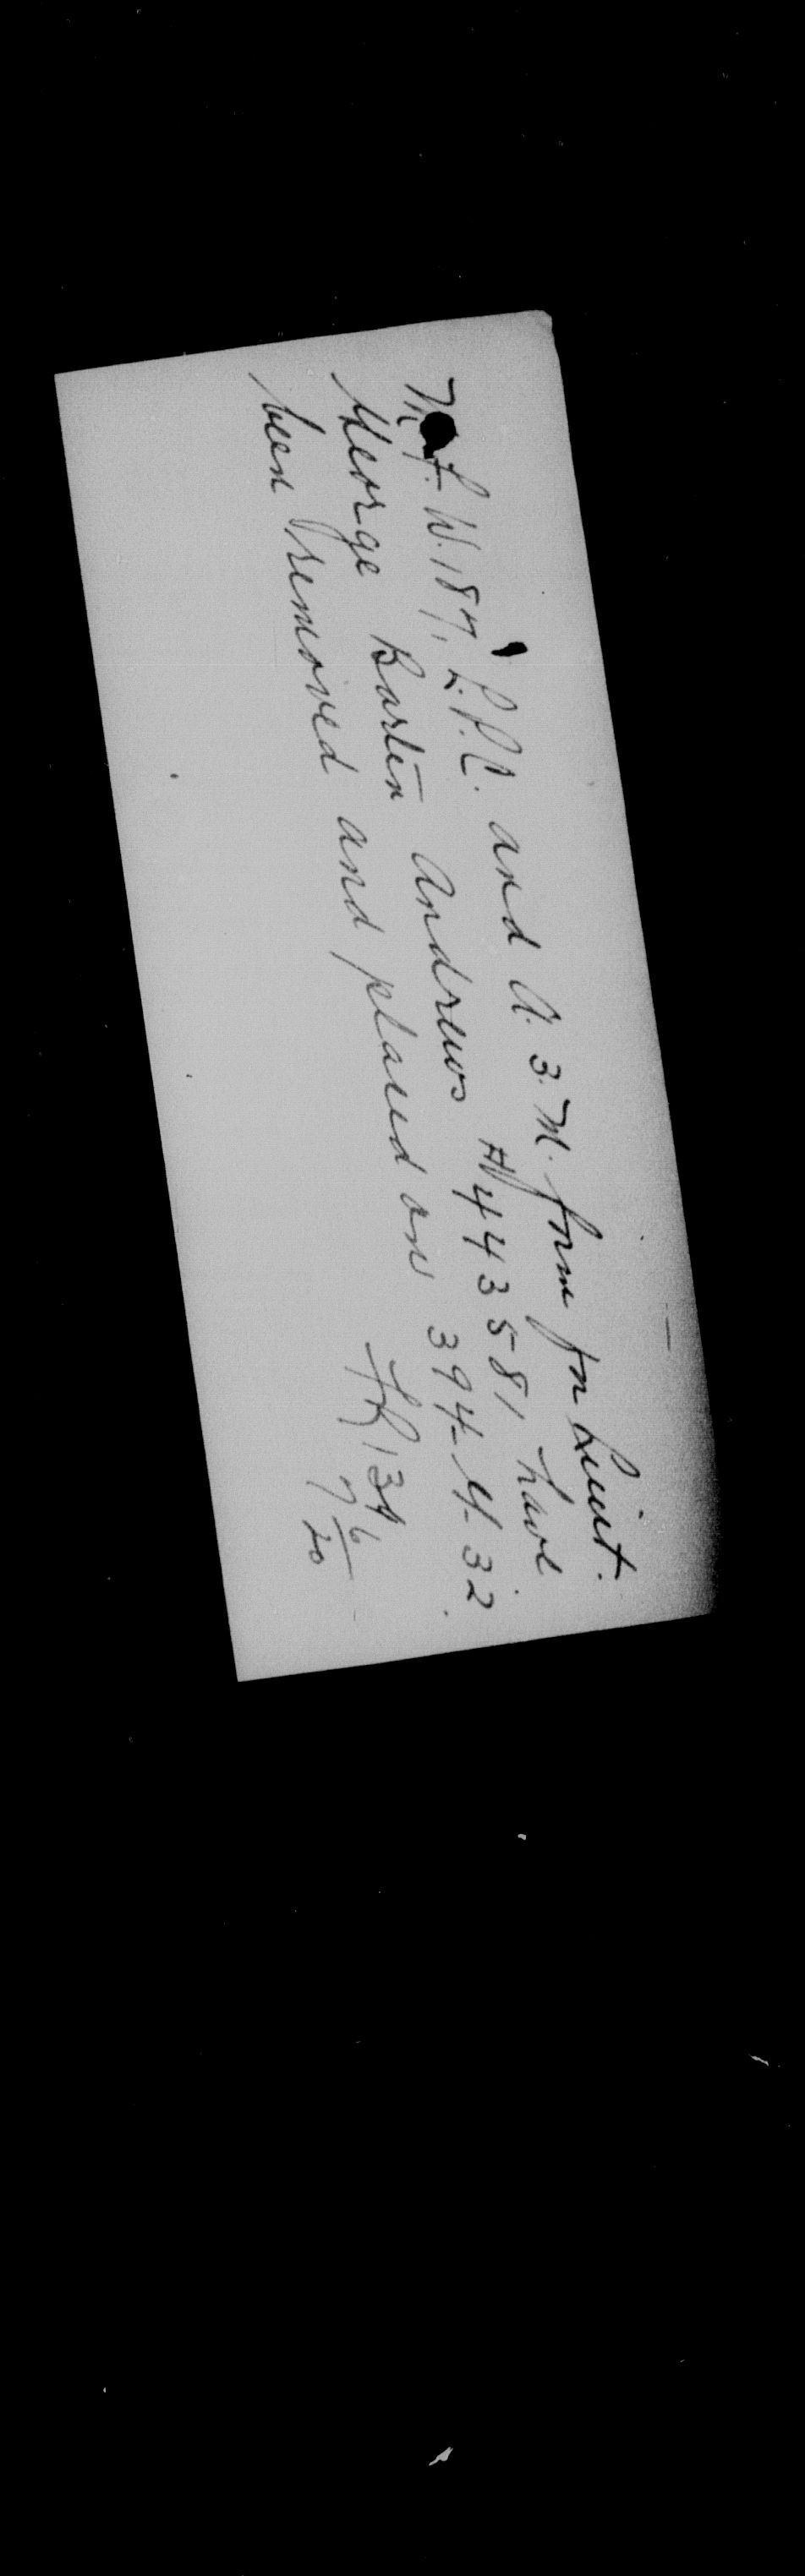 M.F.W. 187, L.P.C. and A.3.M. form for Lieut.
George Barten Andrews # 443581 have
been removed and placed on 394-4-32.
134
7/6/20